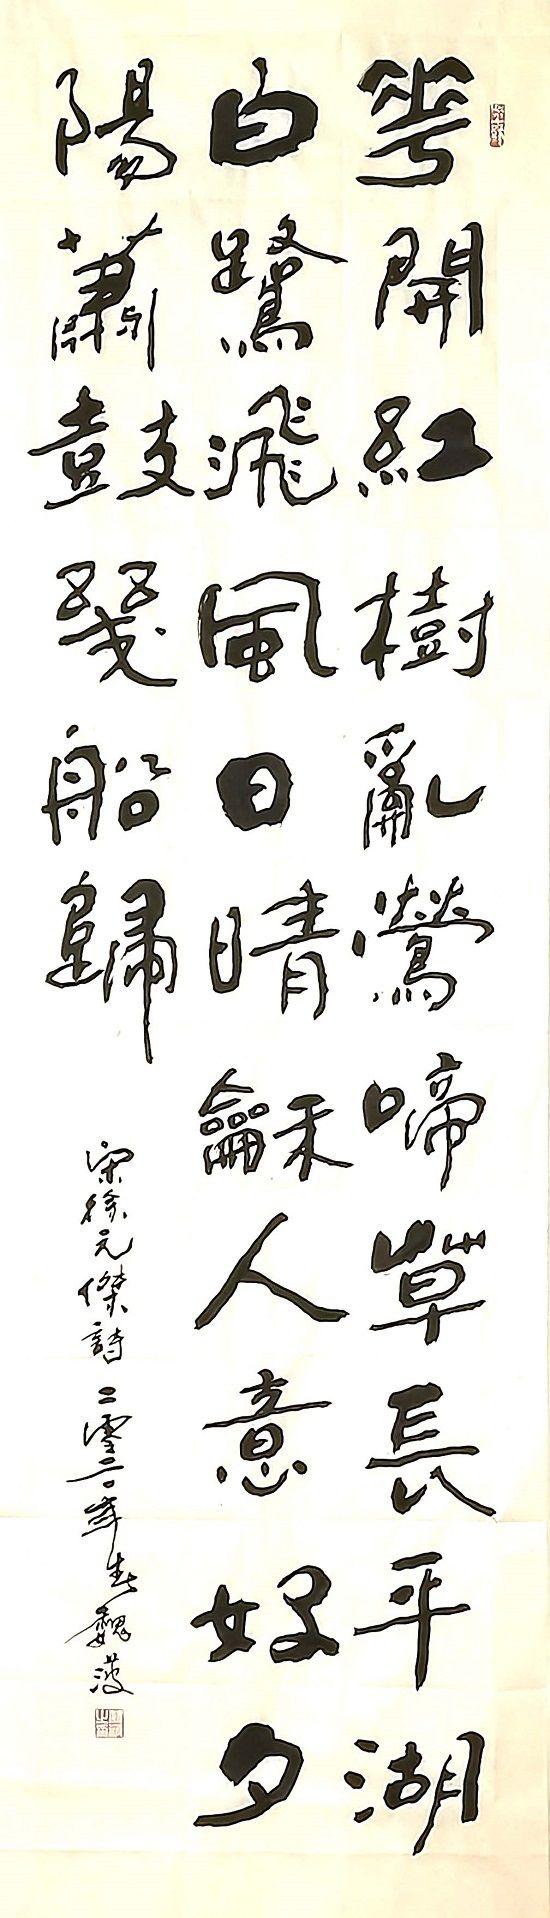 華開紅樹亂鶯啼草長平湖
白鷺飛風日晴龢人意好夕
陽蕭鼓幾船歸
宋徐元傑詩二零二年春魏